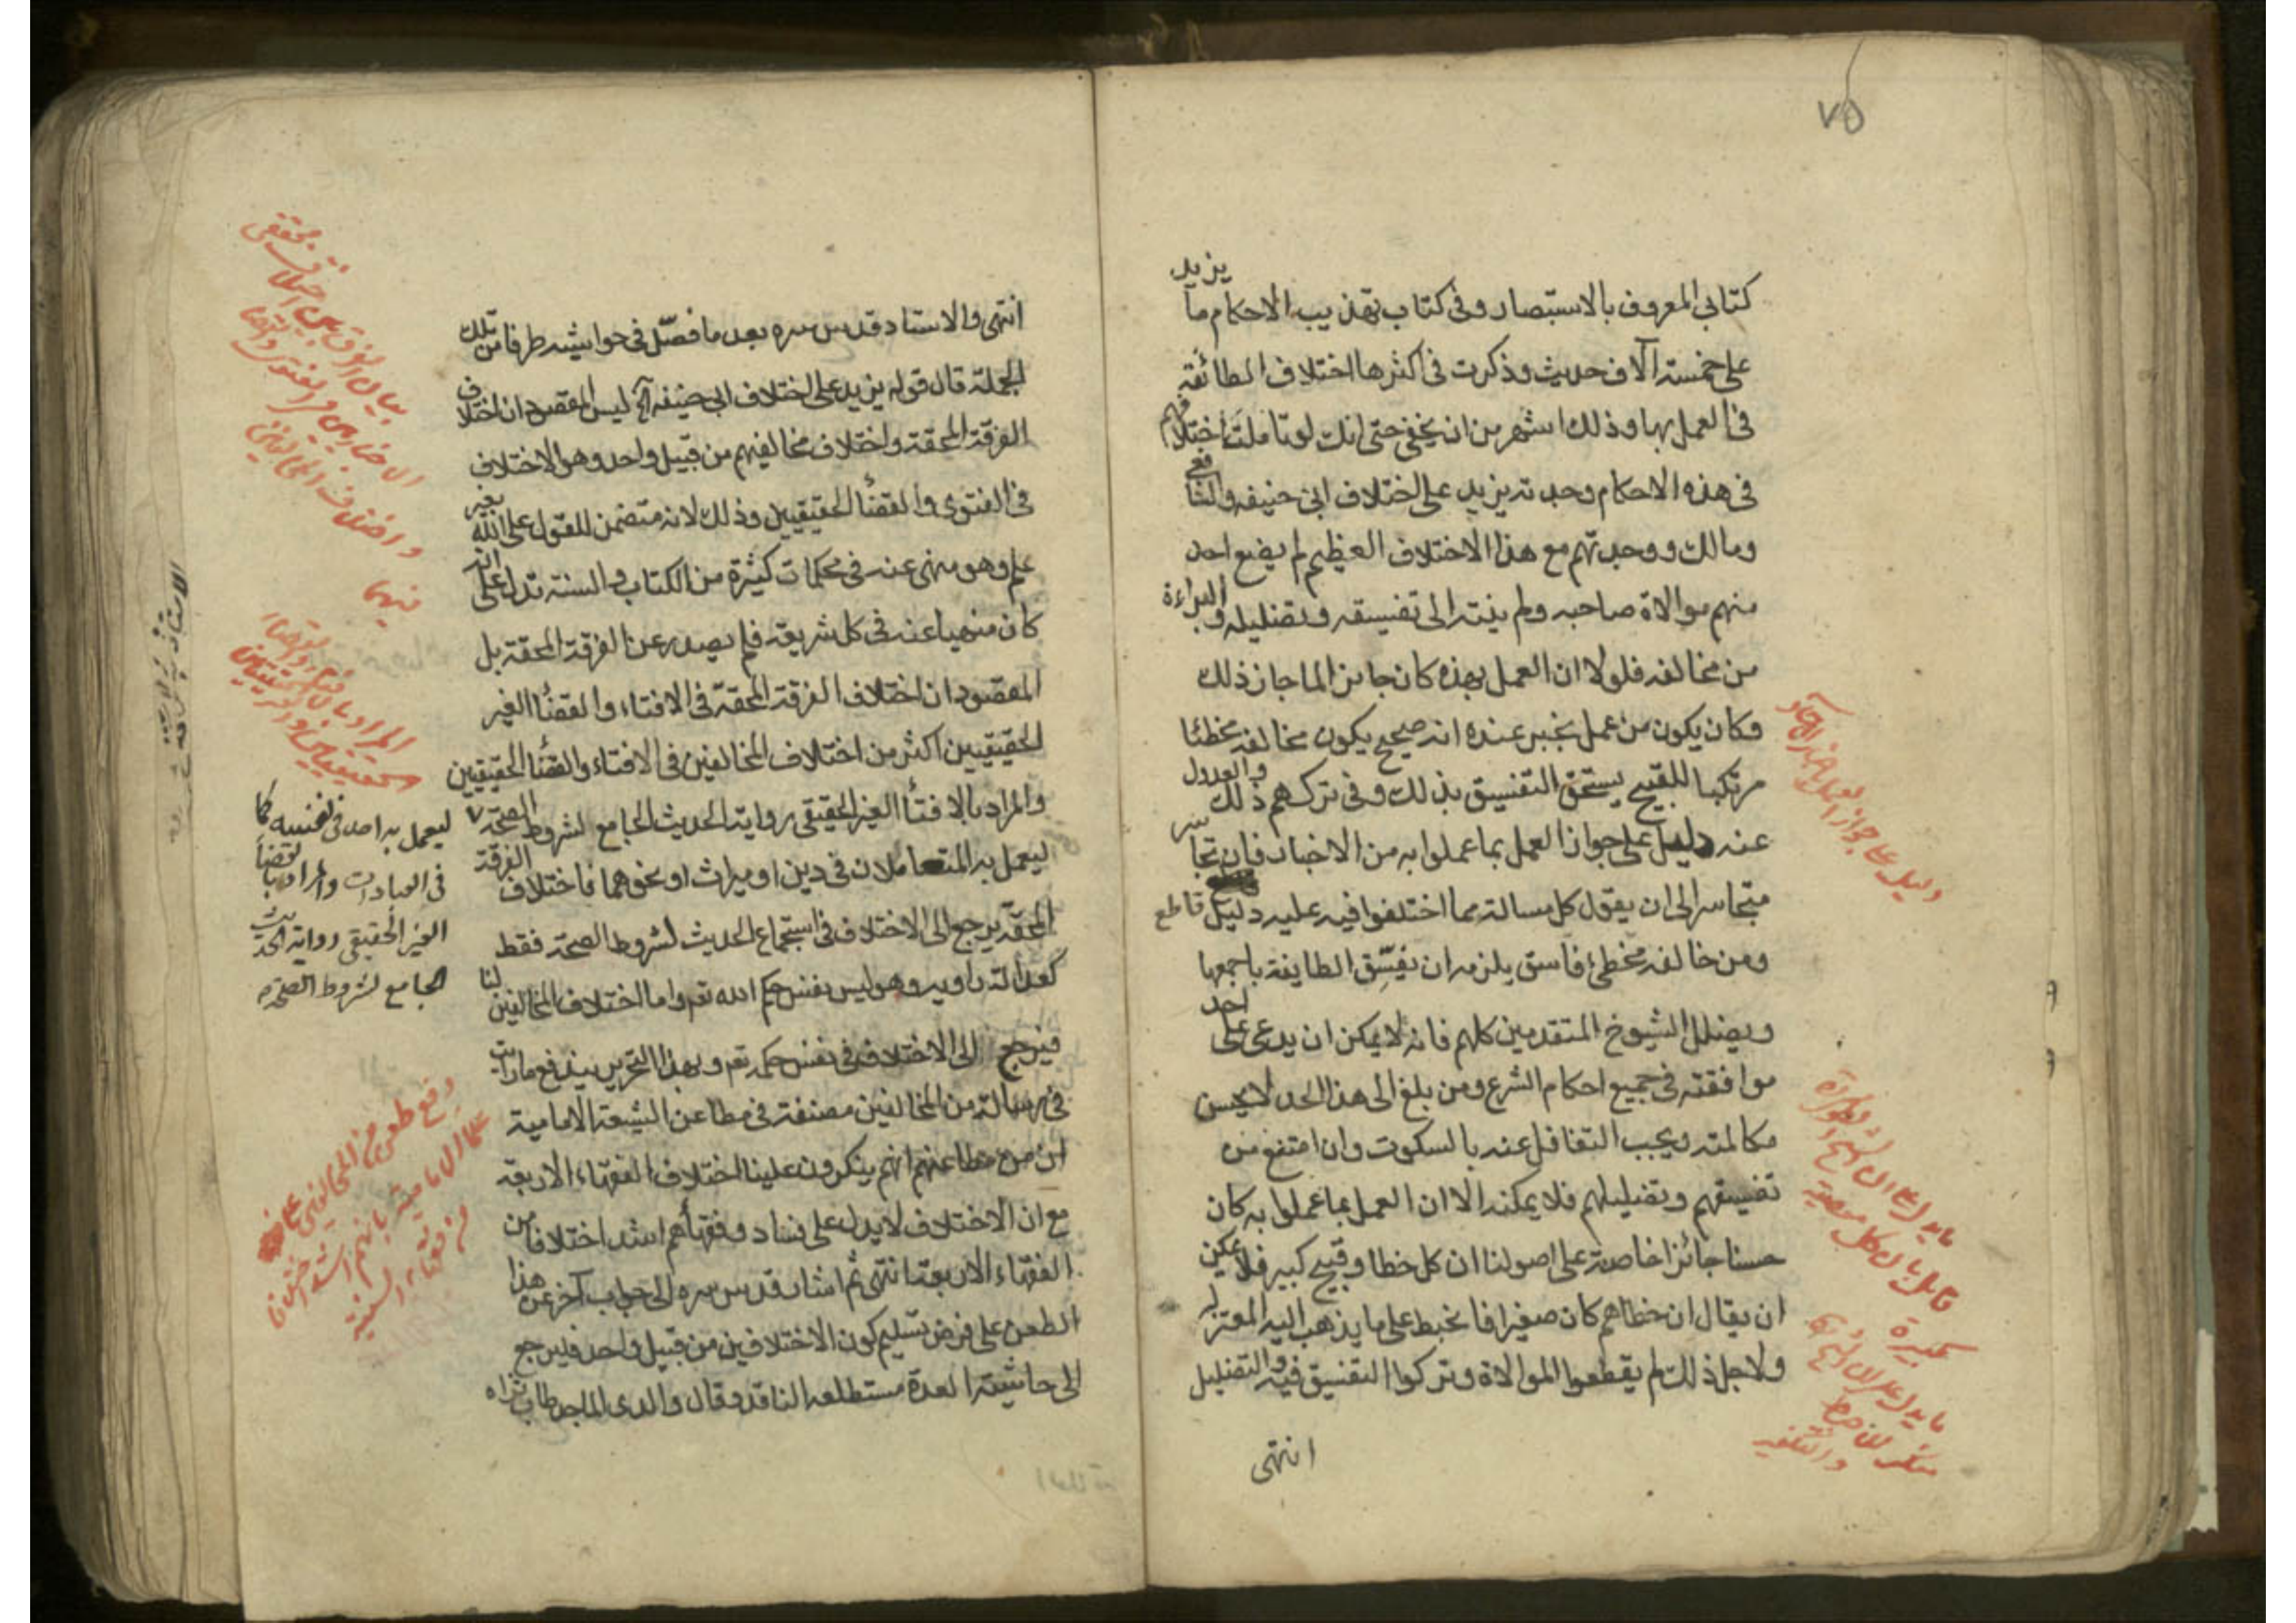 ٧٥
كتابي المعروف بالاستبصار وفي كتاب تهذيب الاحكام ما يزيد
على خمسة آلاف حديث وذكرت في اكثرها اختلاف الطائفة
في العمل بها وذلك اشهر من ان يخفى حتى انك لو تاملت اختلافهم
في هذه الاحكام وجدته يزيد على اختلاف ابي حنيفه والشافعي
ومالك ووجدتهم مع هذا الاختلاف العظيم لم يقطع احد
منهم موالاة صاحبه ولم ينته الى تفسيقه وتضليله والبراءة
من مخالفه فلولا ان العمل بهذه كان جائزا لما جاز ذلك
وكان يكون من عمل بخبر عنده انه صحيح يكون مخالفه مخطئا
مرتكبا للقبيح يستحق التفسيق بذلك وفي تركهم ذلك والعدول
عنه دليل على جواز العمل بما عملوا به من الاخبار فان تجاسر
متجاسر الى ان يقول كل مسالة مما اختلفوا فيه عليه دليل قاطع
ومن خالفه مخطئ فاسق يلزمه ان يفسّق الطايفة باجمعها
ويضلل الشيوخ المتقدمين كلهم فانه لا يمكن ان يدعى على احد
موافقته في جميع احكام الشرع ومن بلغ الى هذا الحد لا يحسن
مكالمته ويجب التغافل عنه بالسكوت وان امتنع من
تفسيقهم وتضليلهم فلا يمكنه الا ان العمل بما عملوا به كان
حسنا جائزا خاصة على اصولنا ان كل خطا وقبيح كبير فلا يمكن
ان يقال ان خطاهم كان صغيرا فانحبط على ما يذهب اليه المعتزله
ولاجل ذلك لم يقطعوا الموالاة وتركوا التفسيق فيه والتضليل
انتهى
دليل على جواز العمل بخبر الآحاد
انتهى والاستاد قدس سره بعد ما فصّل في حواشيه طرفا من تلك
الجملة قال قوله يزيد على اختلاف ابي حنيفه آه ليس المقصود ان اختلاف
الفرقة المحقة واختلاف مخالفيهم من قبيل واحد وهو الاختلاف
في الفتوى والقضأ الحقيقيين وذلك لانه متضمن للقول على الله بغير
علم وهو منهى عنه في محكمات كثيرة من الكتاب والسنة تدل على انه
كان منهيا عنه في كل شريعة فلم يصدر عن الفرقة المحقة بل
المقصود ان اختلاف الفرقة المحقة في الافتاء والقضأ الغير
الحقيقيين اكثر من اختلاف المخالفين في الافتاء والقضأ الحقيقيين
والمراد بالافتأ الغير الحقيقى رواية الحديث الجامع لشروط الصحة
ليعمل به المتعاملان في دين او ميراث او نحوهما فاختلاف الفرقة
المحقة يرجع الى الاختلاف في استجماع الحديث لشروط الصحة فقط
كعدالة راويه وهو ليس بنفس حكم الله تعه واما اختلاف المخالفين لنا
فيرجع الى الاختلاف في نفس حكمه تعه وبهذا التحرير يندفع ما رايت
في رسالة من المخالفين مصنفة في مطاعن الشيعة الامامية
ان من مطاعنهم انهم ينكرون علينا اختلاف الفقهاء الاربعة
مع ان الاختلاف لا يدل على فساد وفقهأهم اشد اختلافا من
الفقهاء الاربعة انتهى ثم اشار قدس سره الى جواب آخر عن هذا
الطعن على فرض تسليم كون الاختلافين من قبيل واحد فليرجع
الى حاشية العدة مستطلعه الناقد وقال والدى الماجد طاب ثراه
ليعمل به احد في نفسه كما
في العبادات والمراد بالقضأ
الغير الحقيقى رواية الحديث
الجامع لشروط الصحة
المراد بالافتاء والقضاء
الحقيقيين وغير الحقيقيين
دفع طعن من المخالفين على
علماء الامامية بانهم اشد اختلافا
من فقهاء السنية